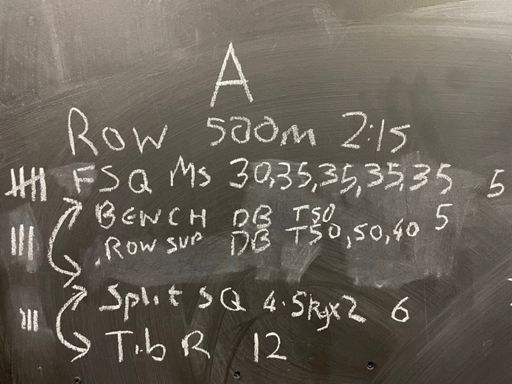 A
ROW 500m 2:15
FSQ Ms 30,35,35,35,35 5
BENCH DB T50 5
ROW SUP DB T50,50,40
Split SQ 4.5kgx2 6
Tib R 12